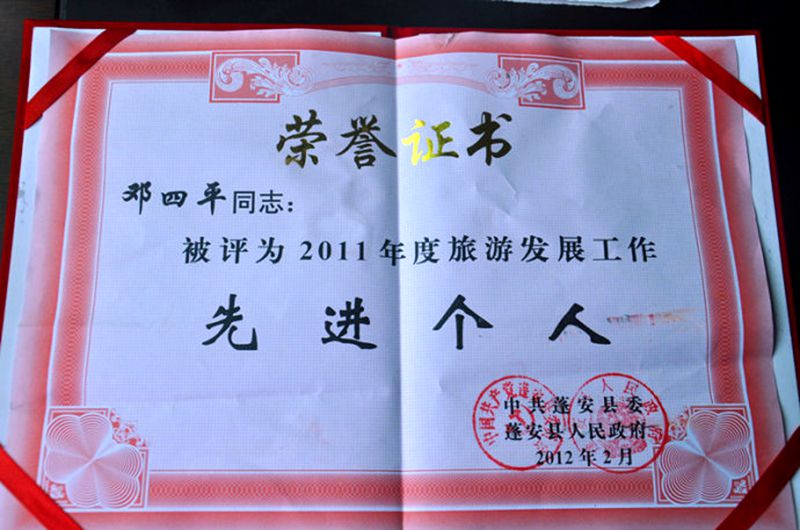 荣誉证书
邓四平同志：
被评为2011年度旅游发展工作
先进个人
中共蓬安县委
蓬安县人民政府
2012年2月